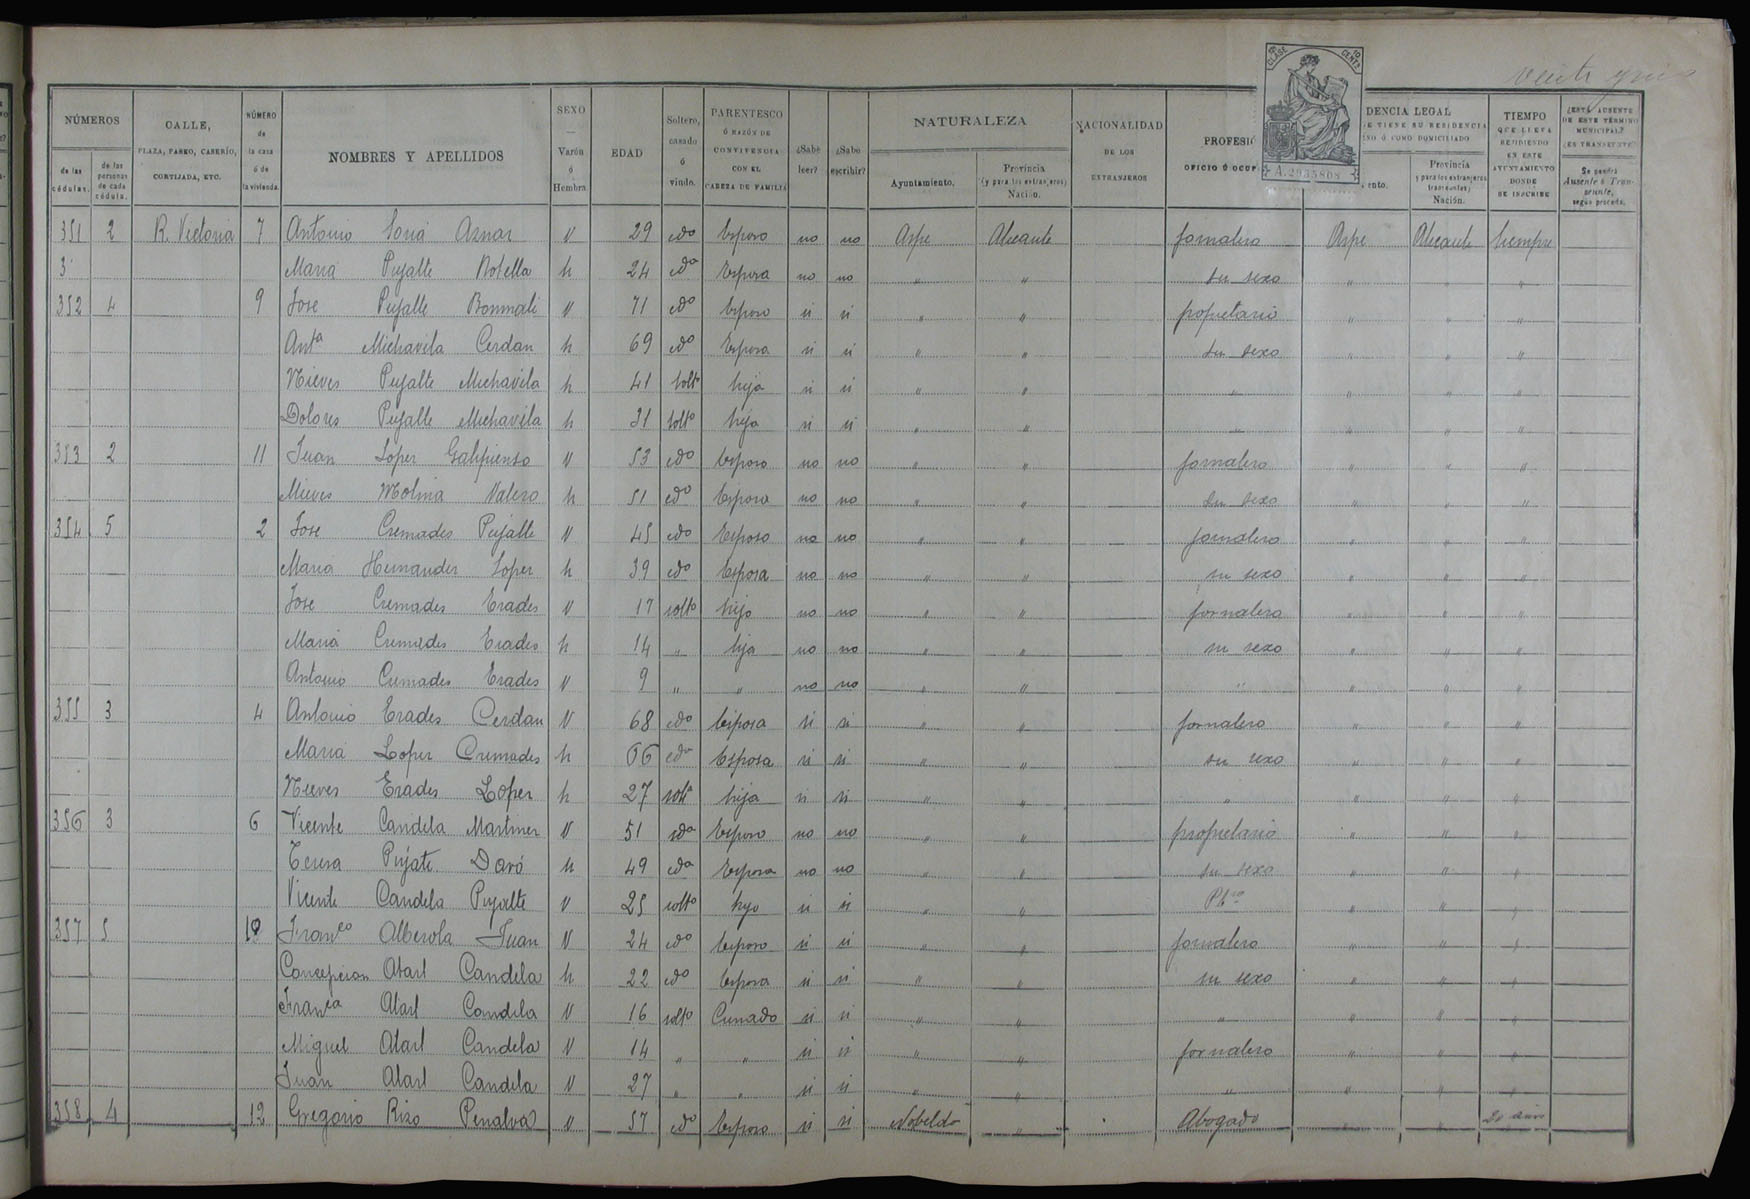 veinte y uno
12ª CLASE 10 CENTS
A.2935808
NÚMEROS
de las cédulas.
de las personas de cada cédula.
CALLE,
PLAZA, PASEO, CASERÍO,
CORTIJADA, ETC.
NÚMERO
de
la casa
ó de
la vivienda.
NOMBRES Y APELLIDOS
SEXO
Varón
ó
Hembra.
EDAD
Soltero,
casado
ó
viudo.
PARENTESCO
Ó RAZÓN DE
CONVIVENCIA
CON EL
CABEZA DE FAMILIA
¿Sabe
leer?
¿Sabe
escribir?
NATURALEZA
Ayuntamiento.
Provincia
(y para los extranjeros)
Nación.
NACIONALIDAD
DE LOS
EXTRANJEROS
PROFESIÓ
OFICIO Ó OCUP
DENCIA LEGAL
E TIENE SU RESIDENCIA
NO Ó COMO DOMICILIADO
ento.
Provincia
y para los extranjeros
transeuntes)
Nación.
TIEMPO
QUE LLEVA
RESIDIENDO
EN ESTE
AYUNTAMIENTO
DONDE
SE INSCRIBE
¿ESTÁ AUSENTE
DE ESTE TÉRMINO
MUNICIPAL?
¿ES TRANSEUNTE?
Se pondrá
Ausente ó Transeunte,
según proceda.
351 2 R. Victoria 7 Antonio Soria Aznar V 29 cdo Esposo no no Aspe Alicante jornalero Aspe Alicante Siempre
3 Maria Pujalte Botella h 24 cda Esposa no no " " su sexo " " "
352 4 9 Jose Pujalte Bonmati V 71 cdo Esposo si si " " propietario " " "
Antª Michavila Cerdan h 69 cdo Esposa si si " " su sexo " " "
Nieves Pujalte Michavila h 41 solt hija si si " " " " " "
Dolores Pujalte Michavila h 31 solto hija si si " " " " " "
353 2 11 Juan Loper Galipienso V 53 cdo Esposo no no " " jornalero " " "
Nieves Molina Valero h 51 cdo Esposa no no " " su sexo " " "
354 5 2 Jose Cremades Pujalte V 45 cdo Esposo no no " " jornalero " " "
Maria Hernander Loper h 39 cdo Esposa no no " " su sexo " " "
Jose Cremades Erades V 17 solto hijo no no " " jornalero " " "
Maria Cremades Erades h 14 " hija no no " " su sexo " " "
Antonio Cremades Erades V 9 " " no no " " " " " "
355 3 4 Antonio Erades Cerdan V 68 cdo Esposa si si " " jornalero " " "
Maria Loper Cremades h 66 cdo Esposa si si " " su sexo " " "
Nieves Erades Loper h 27 solt hija si si " " " " " "
356 3 6 Vicente Candela Martiner V 51 cdo Esposo no no " " propietario " " "
Teresa Pujate Davó h 49 cda Esposa no no " " su sexo " " "
Vicente Candela Pujalte V 25 solto hijo si si " " " " "
357 5 10 Franco Alberola Juan V 24 cdo Esposo si si " " jornalero " " "
Concepcion Abad Candela h 22 cdo Esposa si si " " su sexo " " "
Franca Abad Candela V 16 solto Cunado si si " " " " " "
Miguel Abad Candela V 14 " " si si " " jornalero " " "
Juan Abad Candela V 27 " " si si " " " " " "
358 4 12 Gregorio Rizo Penalva V 57 cdo Esposo si si Nobelda " Abogado " " 20 años